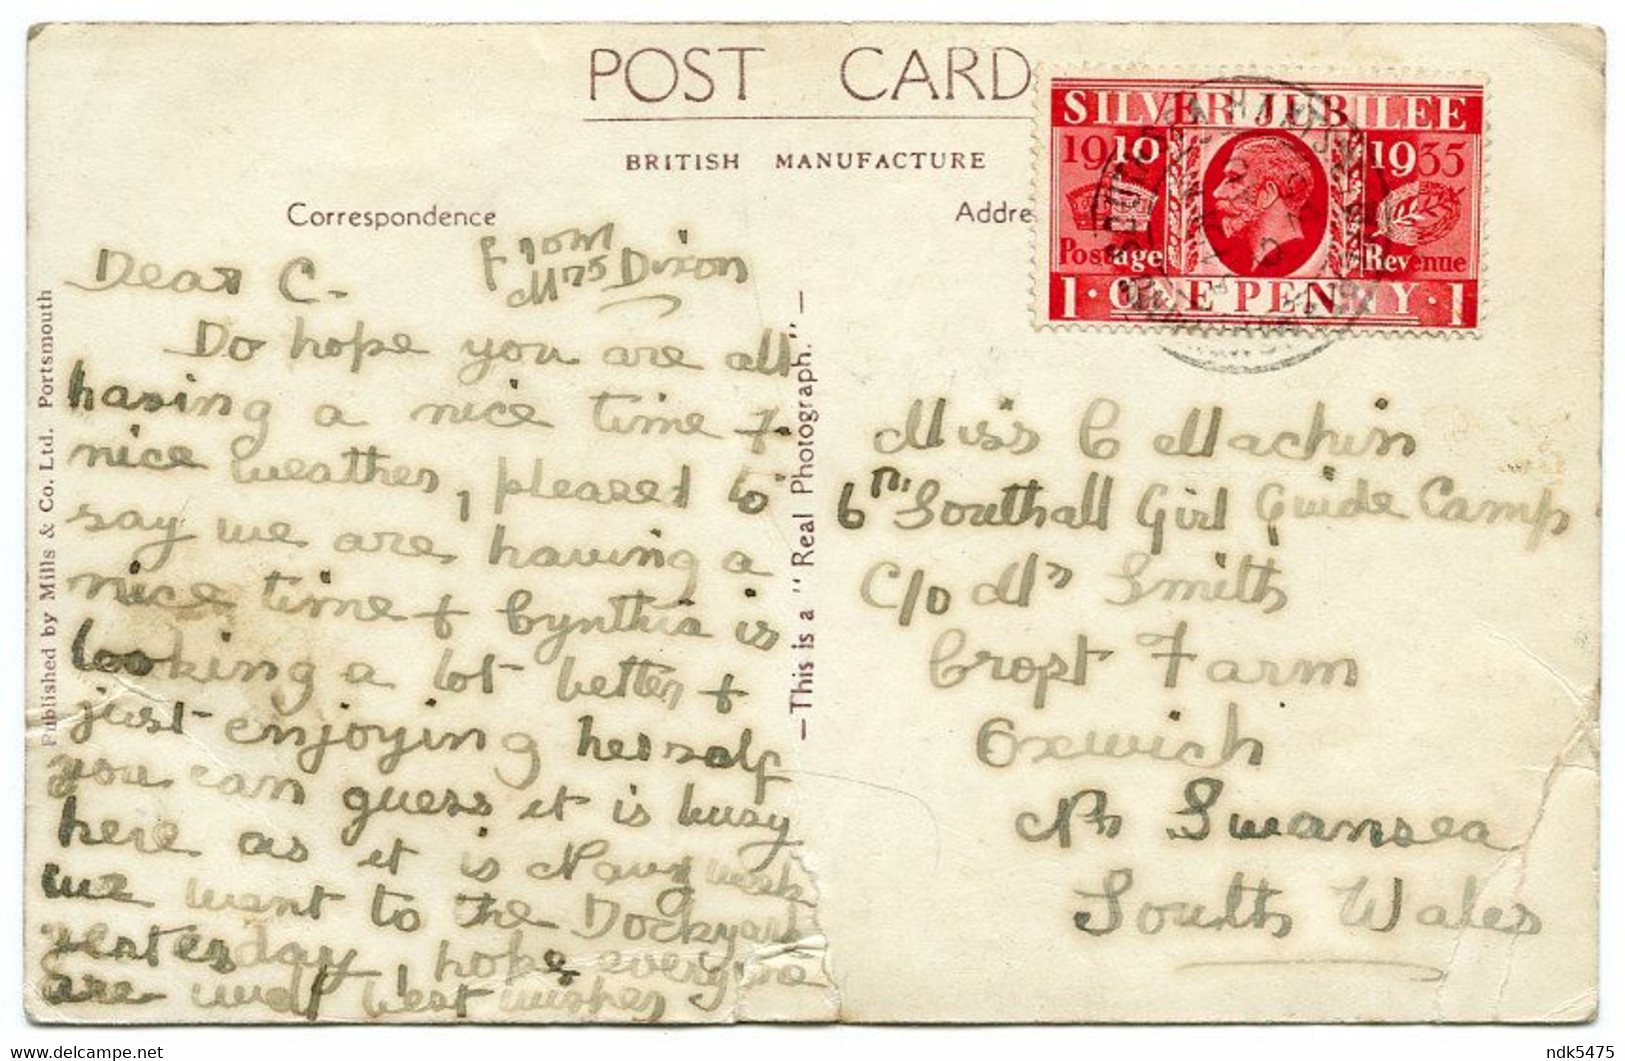 POST CARD
BRITISH MANUFACTURE
Correspondence
Addre
SILVER JUBILEE
1910 1935
Postage Revenue
1 · ONE PENNY · 1
Published by Mills & Co. Ltd. Portsmouth
—This is a "Real Photograph."—
From
Mrs Dixon
Dear C.
Do hope you are all
having a nice time &
nice weather, pleased to
say we are having a
nice time & Cynthia is
looking a lot better &
just enjoying herself
you can guess it is busy
here as it is Navy week
we want to the Dockyard
yesterday, hope everyone
are well best wishes
Miss C Machin
6th Southall Girl Guide Camp
C/o Mr Smith
Cropt Farm
Oxwich
Nr Swansea
South Wales
ndk5475